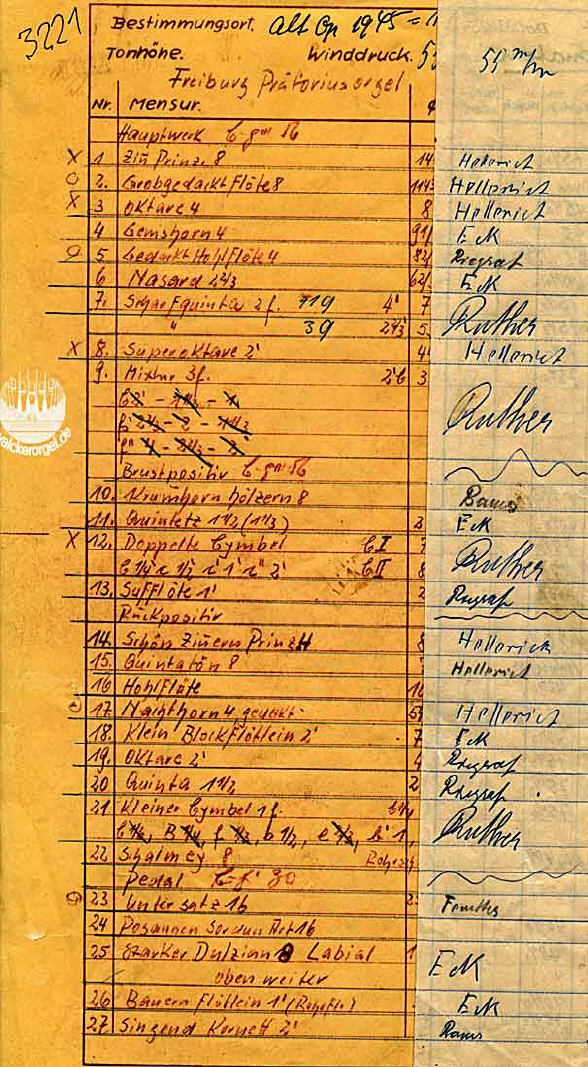 3221
Bestimmungsort. alt Op 1945 =
Tonhöhe. Winddruck. 55 m/m
Freiburg Prätoriusorgel
Nr. Mensur.
Hauptwerk C-g''' 56
X 1 Zin Prinz. 8 14 Hellerich
O 2. Grobgedackt Flöte 8 114 Hellerich
X 3 Oktave 4 8 Hellerich
4 Gemshorn 4 91 Eck
O 5 Gedackt Hohlflöte 4 82
6 Nasard 2 2/3 62 Eck
7. Scharfquinta 2 f. 119 4' 7 Ruther
" 39 2 2/3 5
X 8. Superoktave 2' 4 Hellerich
9. Mixtur 3f. 2' C 3
Ruther
walckerorgel.de
Brustpositiv C-g''' 56
10. Krumhorn hölzern 8
11. Quintetz 1 1/2 (1 1/3) 2 Eck
X 12. Doppelte Cymbel C I Ruther
C II 8
13. Sufflöte 1' 2
Rückpositiv
14. Schön Zinern Prinz 4 8 Hellerich
15. Quintatön 8 Hellerich
16 Hohlflöte 16
17. Nachthorn 4 gedakt 5 Hellerich
18. Klein Blockflötlein 2' 7 Eck
19. Oktave 2' 4
20 Quinta 1 1/2 2
21 Kleiner Cymbel 1 f. Ruther
22 Schalmey 8
Pedal C-f' 30
23 Untersatz 16
24 Posaunen Sordun Art 16
25 Starker Dulzian 8 Labial 1 Eck
oben weiter
26 Bauern Flötlein 1' (Rohrfl.) Eck
27 Singend Kornett 2'